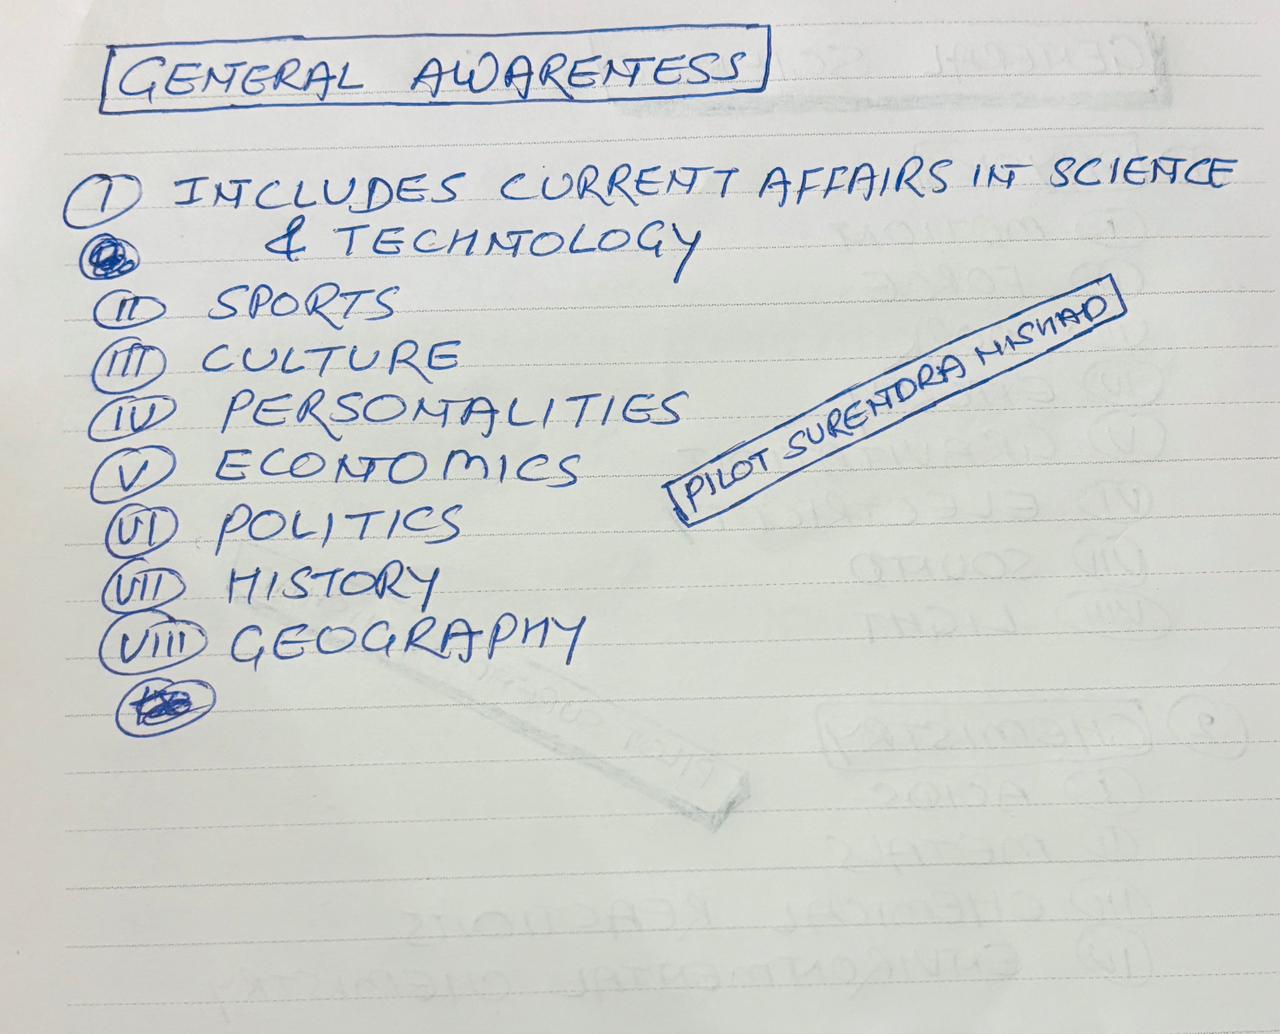 GENERAL AWARENESS
I INCLUDES CURRENT AFFAIRS IN SCIENCE
& TECHNOLOGY
II SPORTS
III CULTURE
IV PERSONALITIES
V ECONOMICS
VI POLITICS
VII HISTORY
VIII GEOGRAPHY
PILOT SURENDRA NISHAD